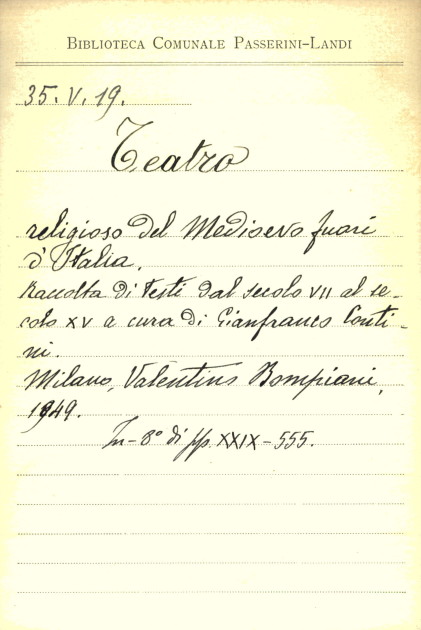 BIBLIOTECA COMUNALE PASSERINI-LANDI
35. V. 19.
Teatro
religioso del Medioevo fuori
d'Italia.
Raccolta di testi dal secolo VII al se-
colo XV a cura di Gianfranco Conti-
ni.
Milano, Valentino Bompiani,
1949.
In-8° di pp. XXIX-555.